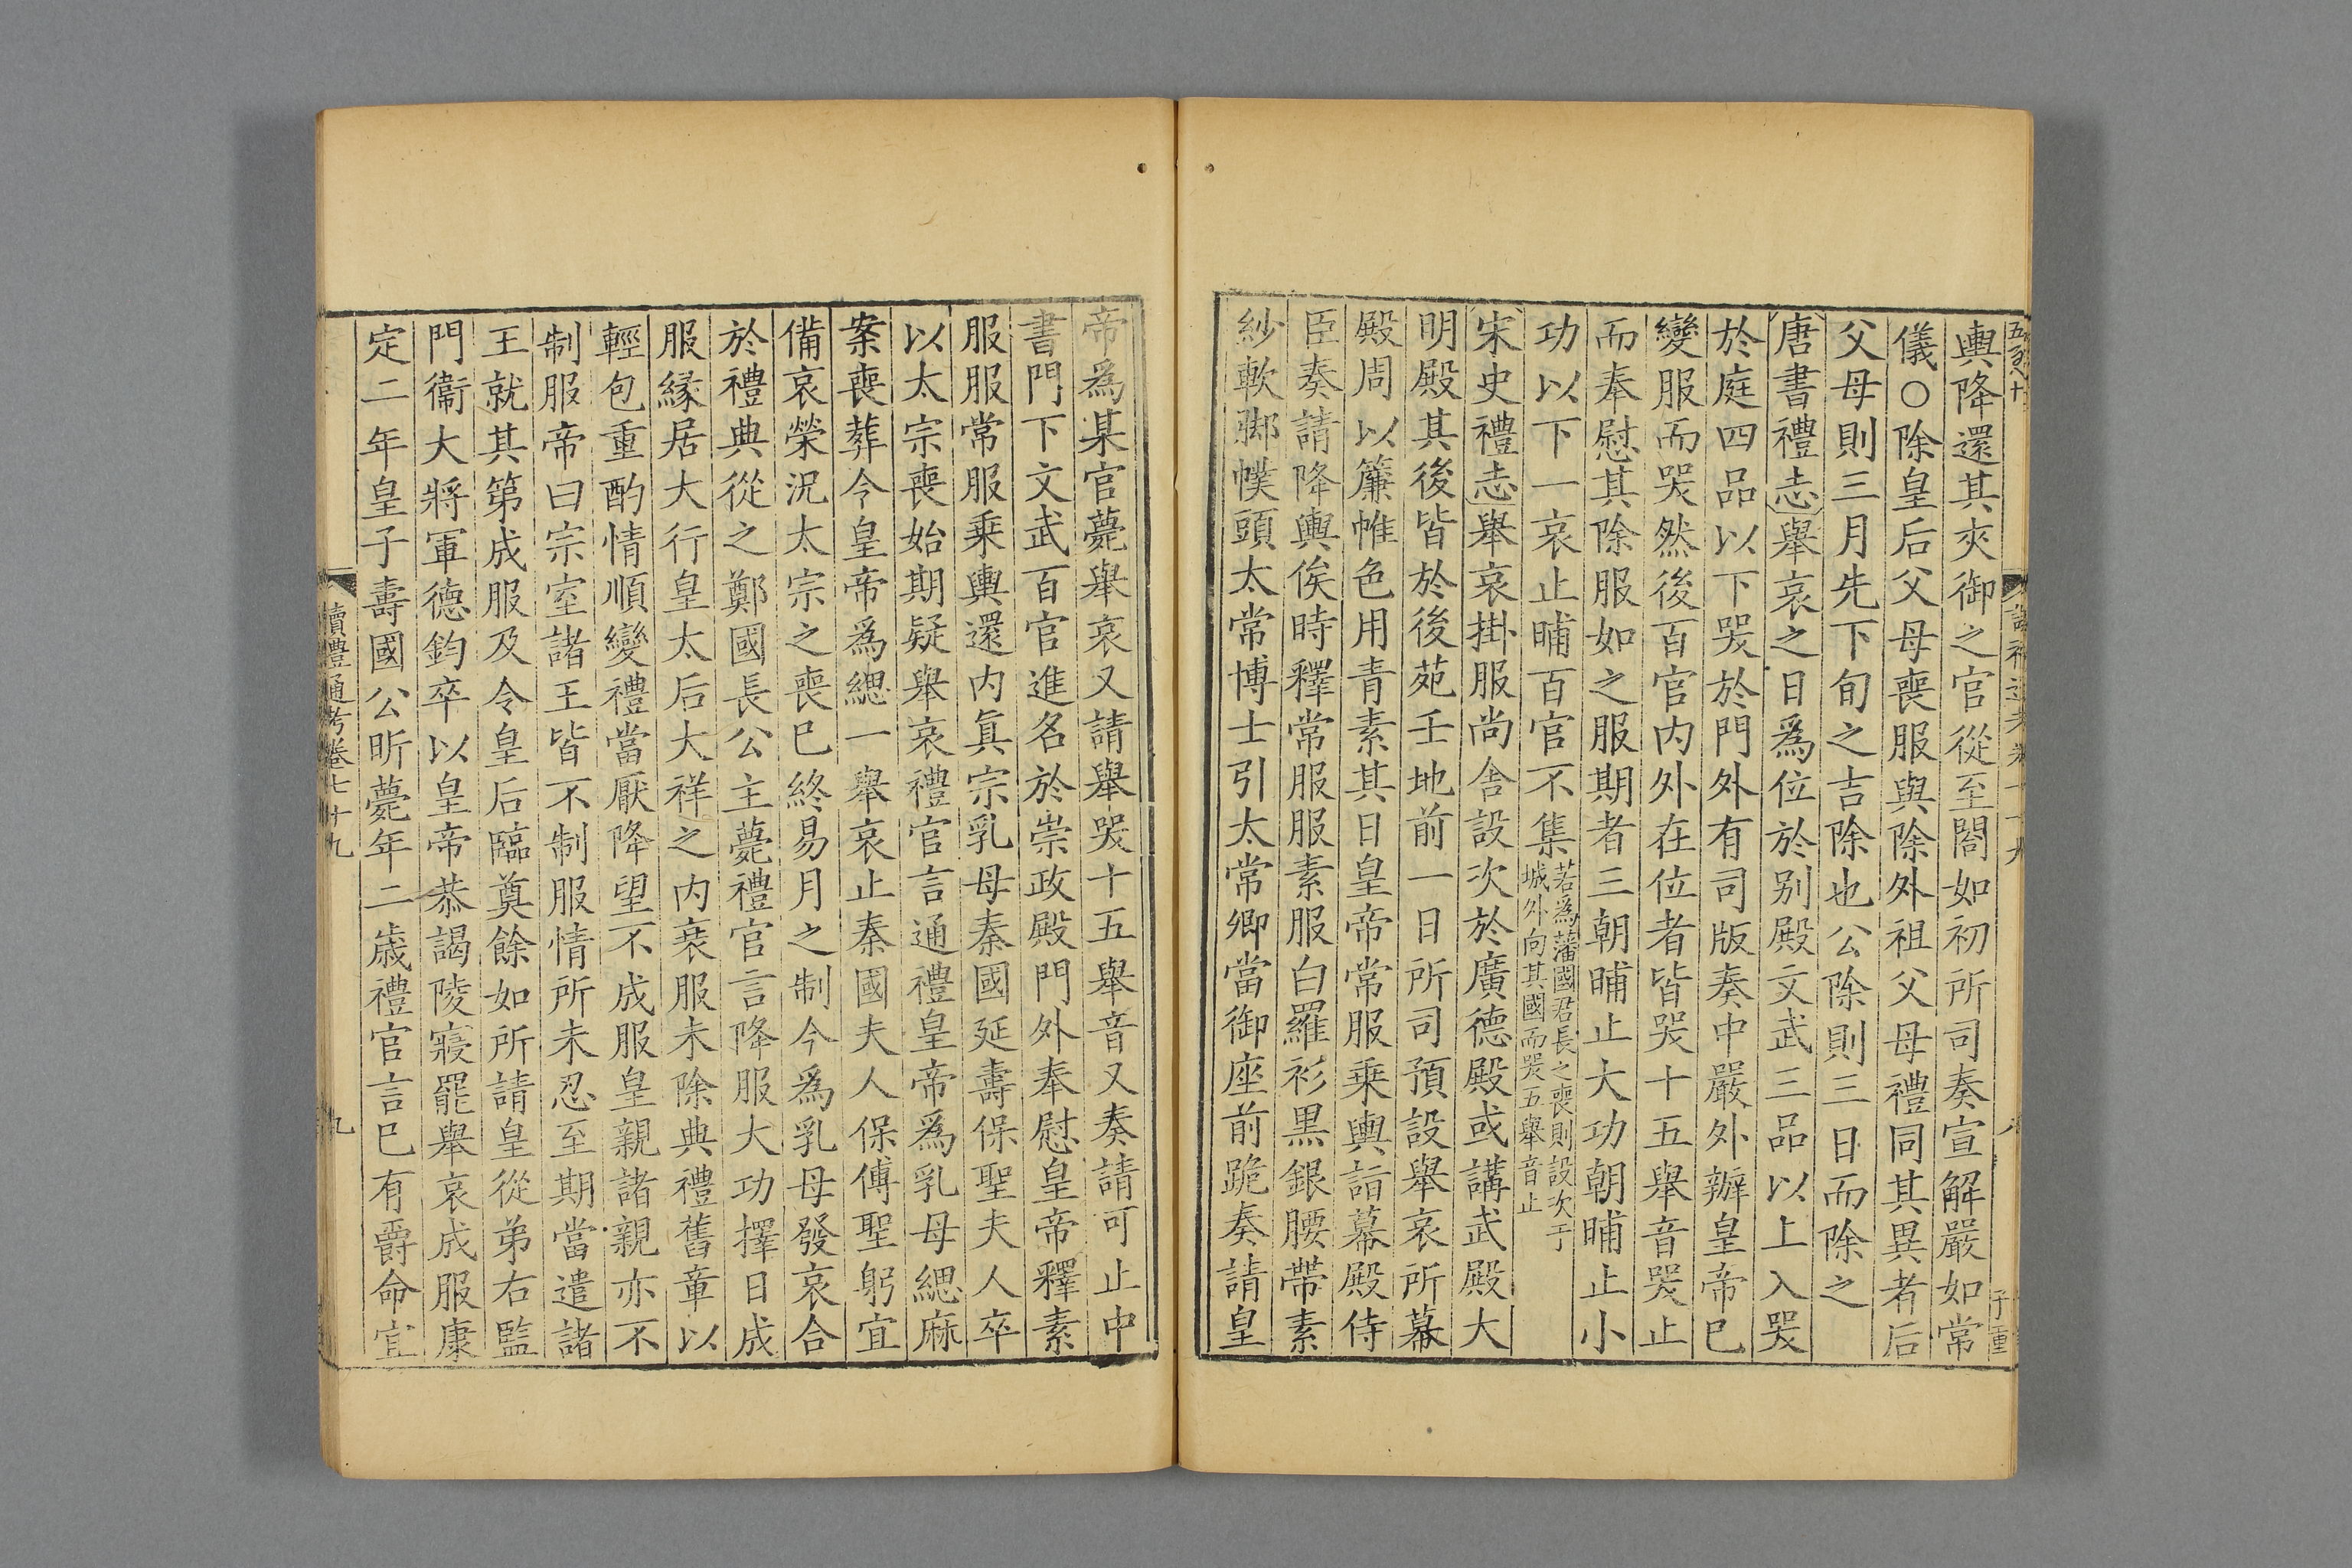 輿降還其夾御之官從至閤如初所司奏宣解嚴如常
儀○除皇后父母喪服與除外祖父母禮同其異者后
父母則三月先下旬之吉除也公除則三日而除之
唐書禮志舉哀之日爲位於别殿文武三品以上入哭
於庭四品以下哭於門外有司版奏中嚴外辦皇帝已
變服而哭然後百官内外在位者皆哭十五舉音哭止
而奉慰其除服如之服期者三朝晡止大功朝晡止小
功以下一哀止晡百官不集
若爲藩國君長之喪則設次于
城外向其國而哭五舉音止
宋史禮志舉哀掛服尚舍設次於廣德殿或講武殿大
明殿其後皆於後苑壬地前一日所司預設舉哀所幕
殿周以簾帷色用青素其日皇帝常服乗輿詣幕殿侍
臣奏請降輿俟時釋常服服素服白羅衫黑銀腰帶素
紗軟脚幞頭太常博士引太常卿當御座前跪奏請皇
帝爲某官薨舉哀又請舉哭十五舉音又奏請可止中
書門下文武百官進名於崇政殿門外奉慰皇帝釋素
服服常服乗輿還内真宗乳母秦國延壽保聖夫人卒
以太宗喪始期疑舉哀禮官言通禮皇帝爲乳母緦麻
案喪葬令皇帝爲緦一舉哀止秦國夫人保傅聖躬宜
備哀榮況太宗之喪已終易月之制今爲乳母發哀合
於禮典從之鄭國長公主薨禮官言降服大功擇日成
服縁居大行皇太后大祥之内衰服未除典禮舊章以
輕包重酌情順變禮當厭降望不成服皇親諸親亦不
制服帝曰宗室諸王皆不制服情所未忍至期當遣諸
王就其第成服及令皇后臨奠餘如所請皇從弟右監
門衞大將軍德鈞卒以皇帝恭謁陵寢罷舉哀成服康
定二年皇子壽國公昕薨年二歳禮官言已有爵命宜
讀禮通考卷七十九
九